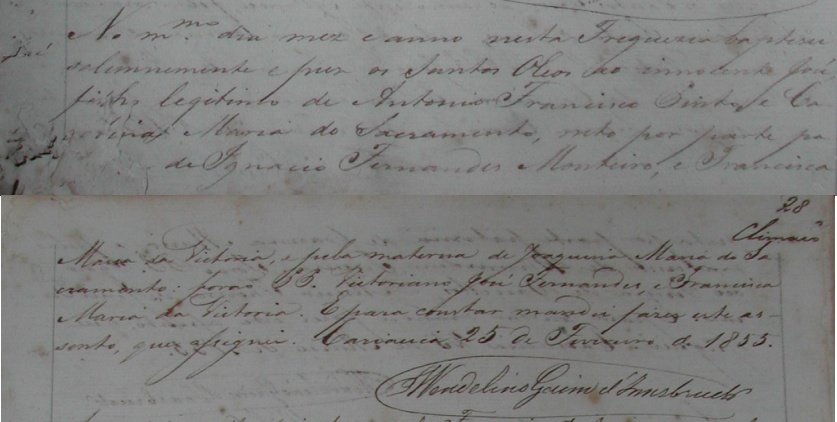 José
No mmo. dia mez e anno nesta Freguezia baptisei
solemnemente e puz os Santos Oleos ao innocente José
filho legitimo de Antonio Francisco Pinto, e Ca
Maria do Sacramento, neto por parte pa
de Ignacio Fernandes Monteiro, e Francisca
28
Maria da Victoria, e pela materna de Joaquina Maria do Sa
cramento: forão PP. Victoriano José Fernandes, e Francisca
Maria da Victoria. E para constar mandei fazer este as-
sento, que assignei. 25 de Fevereiro de 1855.